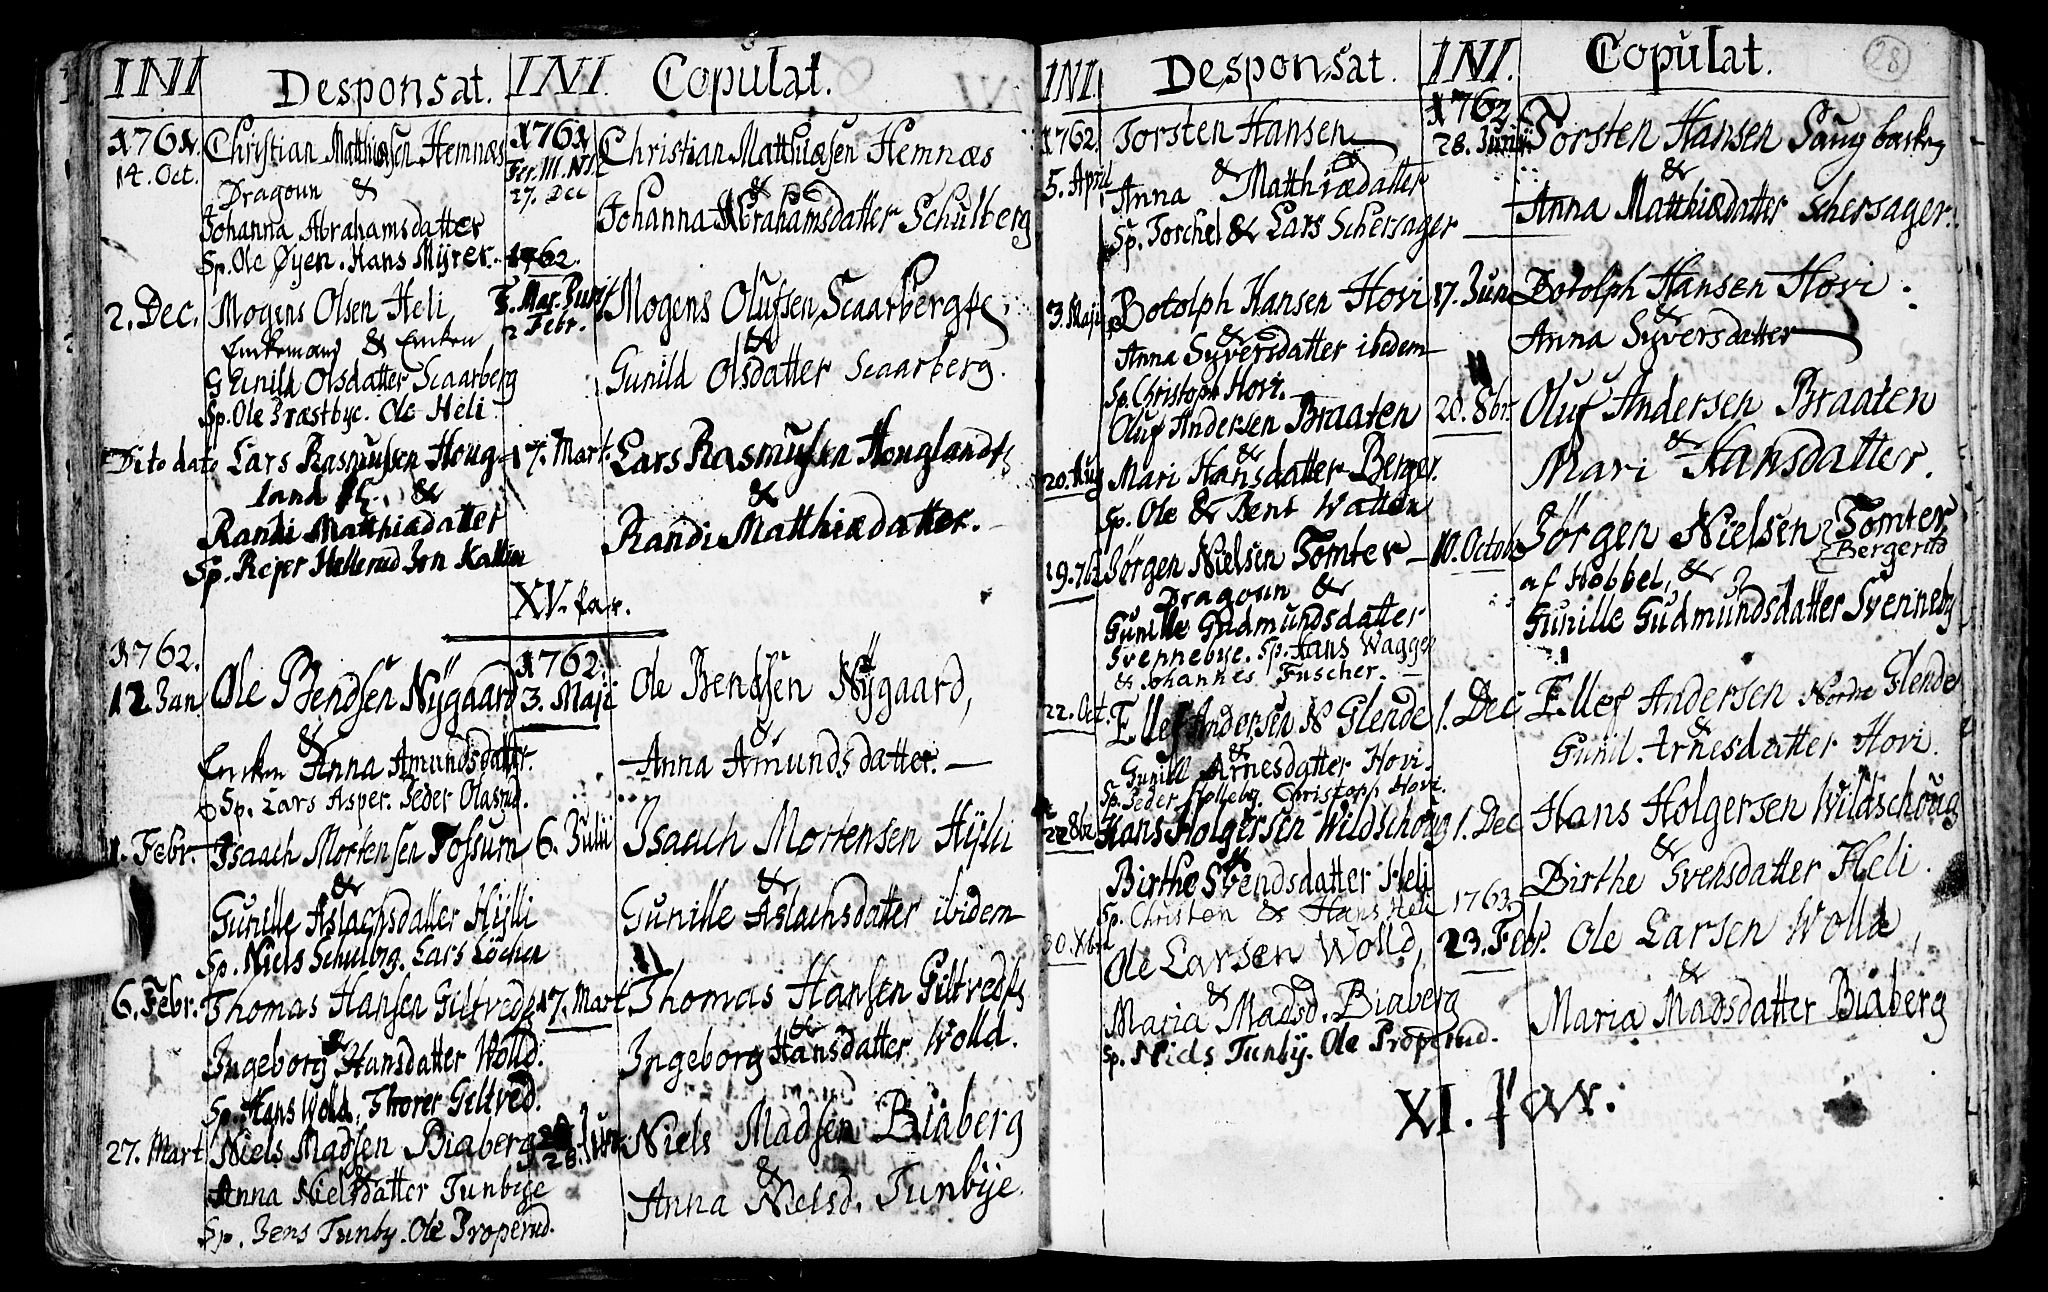 INI
Desponsat.
1761.
14. Oct.
Christian Matthiæsen Hemnæs
Dragoun &
Johanna Abrahamsdatter
Sp. Ole Øyen. Hans Myrer.
2. Dec.
Mogens Olsen Heli
Enkemand & Enken
Gunild Olsdatter Scaarberg
Sp. Ole Præstbye. Ole Heli
Dito dato
Lars Rasmussen Houg-
land &
Randi Matthiædatter
Sp. Rejer Hellerud Jon Kallin
1762.
12 Jan.
Ole Bendsen Nÿgaard
&
Enken Anna Amundsdatter.
Sp. Lars Asper. Peder Olasrud.
1. Febr.
Isaach Mortensen Fossum
&
Gunille Aslachsdatter Hÿlli
Sp. Niels Schulbrg. Lars Løchen
6. Febr.
Thomas Hansen Giltvedt
&
Ingeborg Hansdatter Wolld.
Sp. Hans Wold. Thorer Giltved.
27. Mart
Niels Madsen Biaberg
&
Anna Nielsdatter Tunbÿe
Sp. Jens Tunby. Ole Properud.
INI
Copulat.
1761
27. Dec
Christian Matthiæsen Hemnæs
&
Johanna Abrahamsdatter Schulberg
1762.
F. Mar. Purif.
2 Febr.
Mogens Olufsen Scaarberg
&
Gunild Olsdatter Scaarberg.
17. Mart.
Lars Rasmussen Houglandt
&
Randi Matthiædatter.
XV. par.
1762
3. Maji
Ole Bendsen Nÿgaard,
&
Anna Amundsdatter.
6. Julii
Isaach Mortensen Hÿlli
&
Gunille Aslachsdatter ibidem
17. Mart
Thomas Hansen Giltvedt
&
Ingeborg Hansdatter Wolld.
28. Jun.
Niels Madsen Biaberg
&
Anna Nielsd. Tunbÿe.
28
INI.
Desponsat.
1762.
5. April
Torsten Hansen
&
Anna Matthiædatter
Sp. Torchel & Lars Schersager
3. Maji
Botolph Hansen Hovi
&
Anna Syversdatter ibidem
Sp. Christoph Hovi.
Oluf Andersen Braaten
&
20. Aug
Mari Hansdatter Berger.
Sp. Ole & Bent Watten
19. 7br
Jørgen Nielsen Tomter
Dragoun &
Gunille Gudmundsdatter
Svennebye. Sp. Hans Wagge
& Johannes Fuscher.
22. Oct.
Ellef Andersen N Glende
&
Gunill Arnesdatter Hovi.
Sp. Peder Holleby. Christoph Hovi.
22 8br
Hans Holgersen Wildschoug
&
Birthe Svendsdatter Heli
Sp. Christen & Hans Heli
30. Xbr.
Ole Larsen Wolld,
&
Maria Madsd. Biaberg
Sp. Niels Tunbÿ. Ole Properud.
INI.
Copulat.
1762
28. Junii
Torsten Hansen
&
Anna Matthiædatter Schersager.
17. Jun
Botolph Hansen Hovi.
&
Anna Syversdatter
20. 8br.
Oluf Andersen Braaten
&
Mari Hansdatter.
10. Octobr
Jørgen Nielsen Tomter
Bergerud
af Hobbel, &
Gunille Gudmundsdatter Svenneby
1. Dec
Ellef Andersen Nordre Glende
&
Gunil. Arnesdatter Hovi.
1. Dec
Hans Holgersen Wildschoug
&
Birthe Svensdatter Heli.
1763
23. Febr.
Ole Larsen Wolld,
&
Maria Madsdatter Biaberg
XI. par.